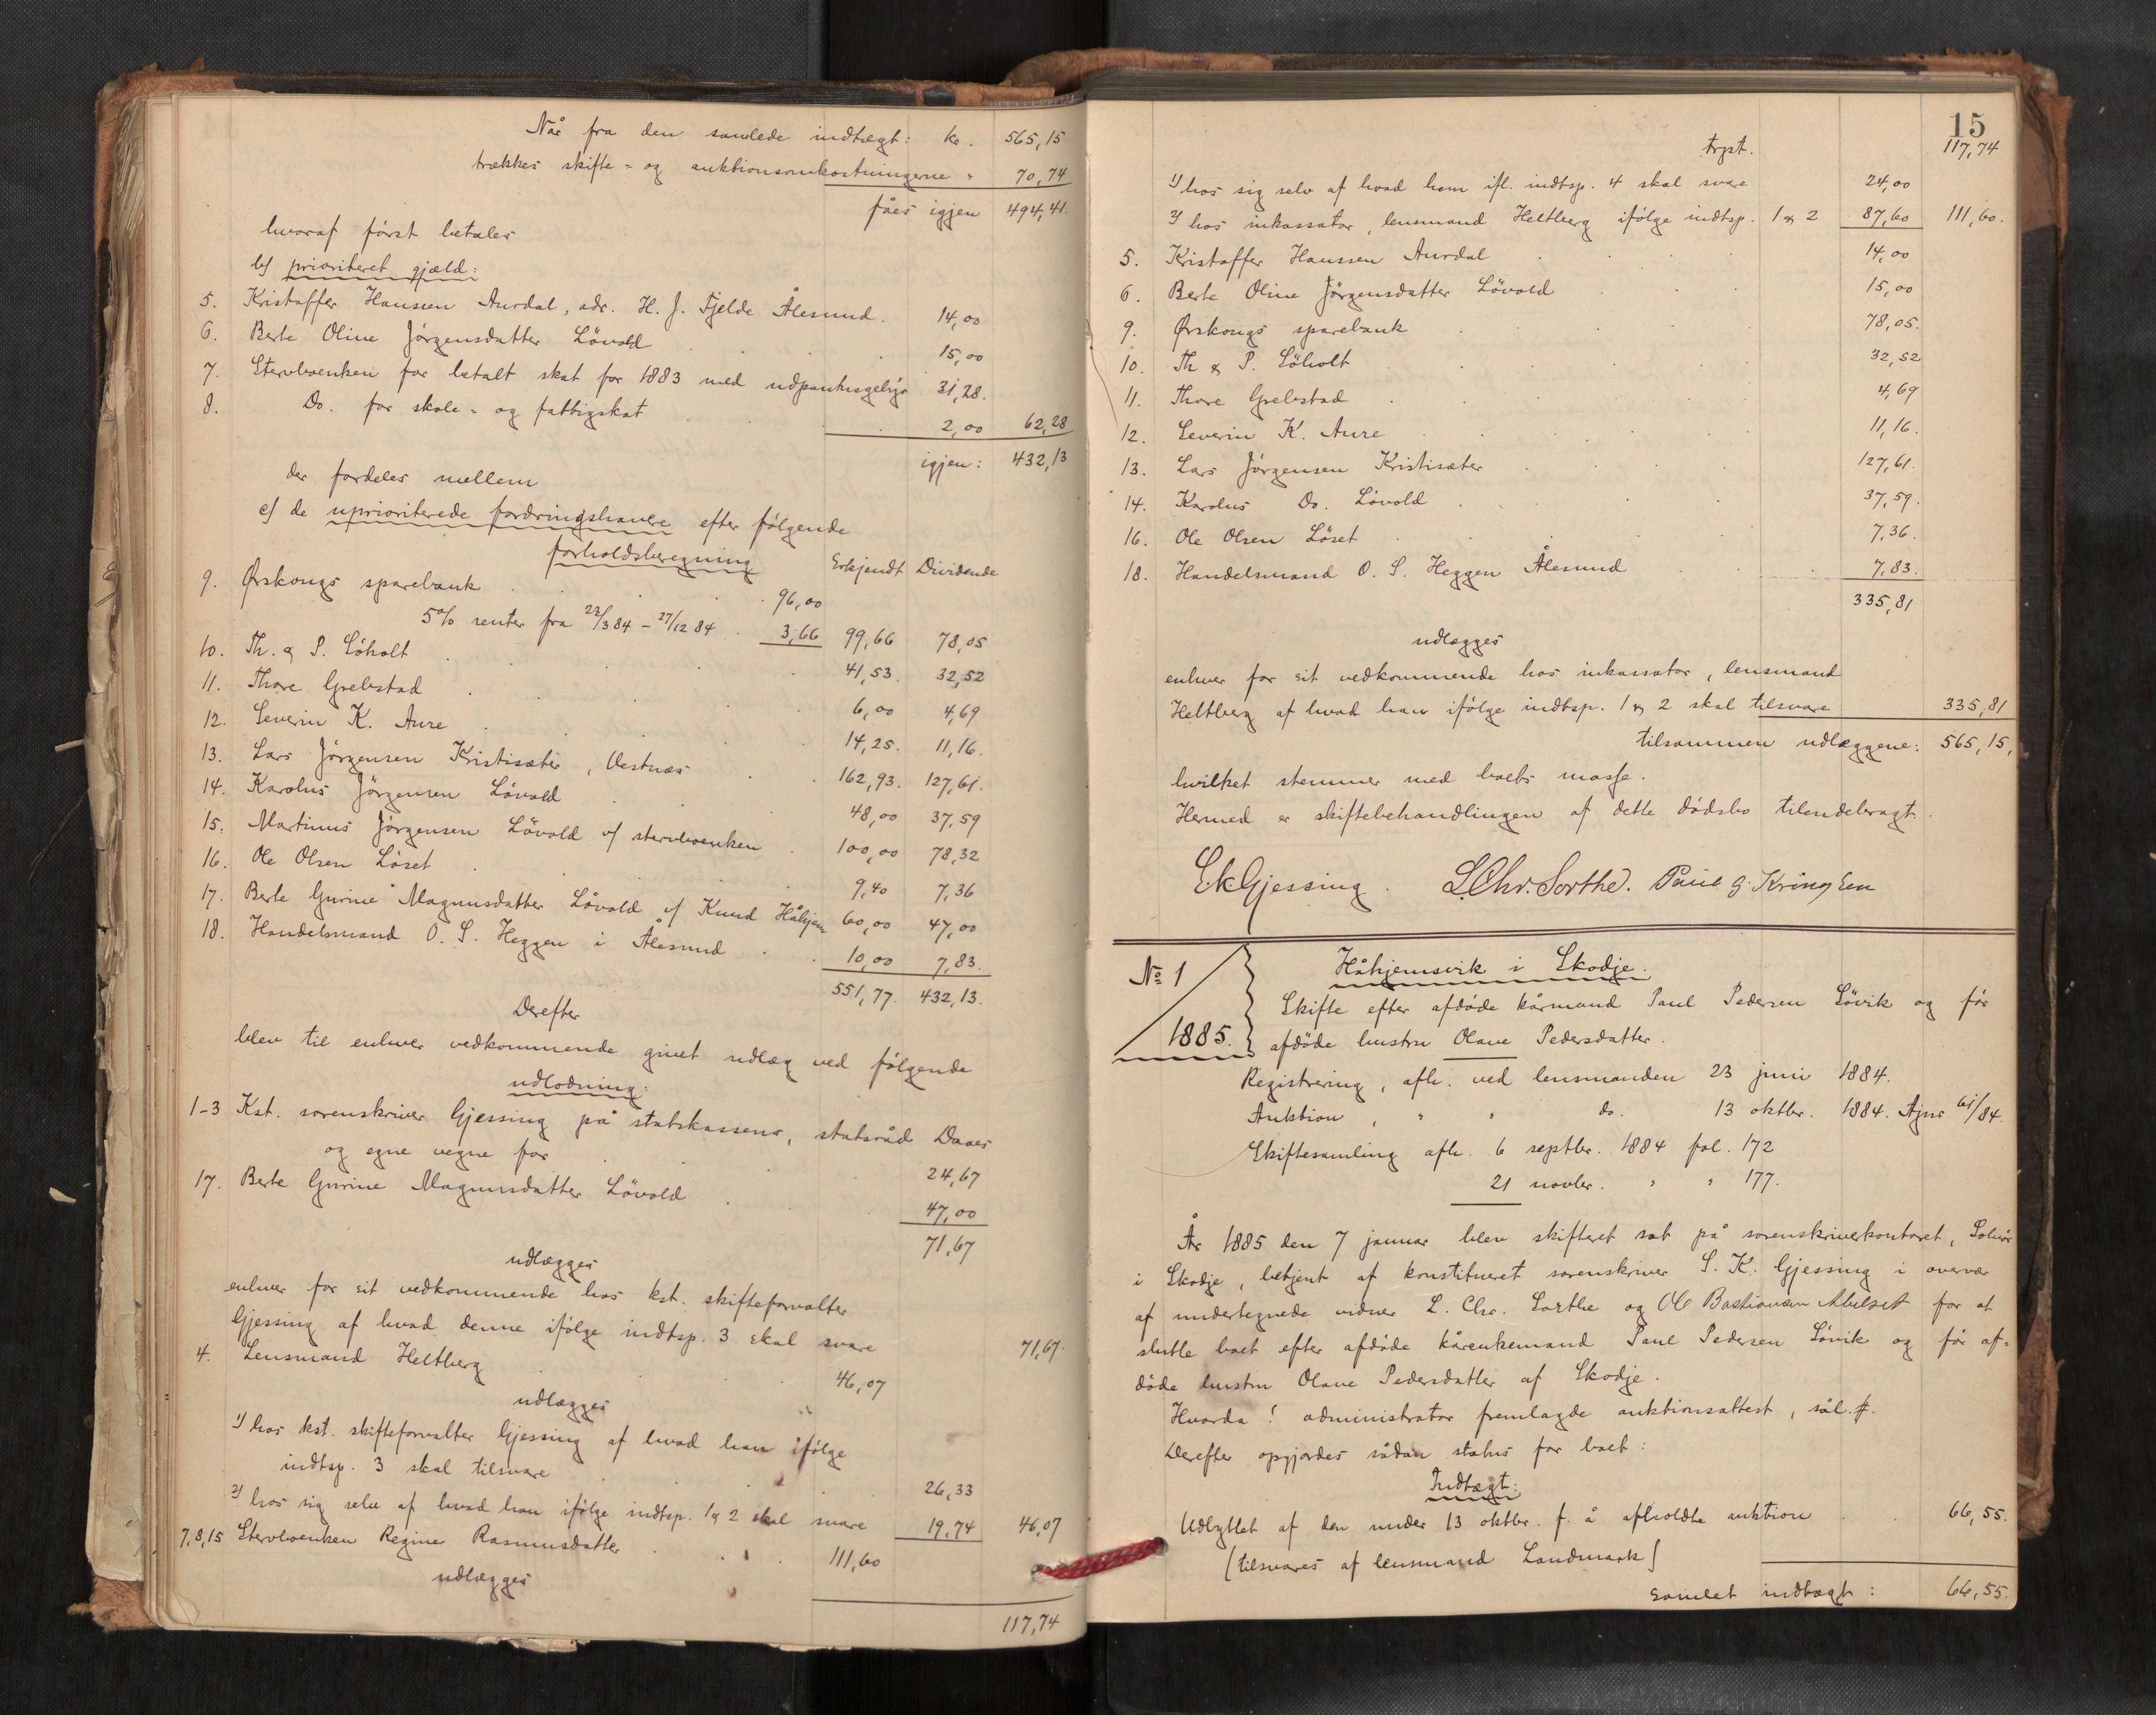 Når fra den samlede indtægt: kr. 565,15
trækkes skifte- og auktionsomkostningerne " 70,74
fåes igjen 494,41.
hvoraf først betales
b) prioriteret gjæld:
5. Kristoffer Hanssen Aurdal, adr. H. J. Fjelde Ålesund. 14,00
6. Berte Oline Jörgensdatter Lövold . . . 15,00
7. Stervboenken for betalt skat for 1883 med udpantningsgebyr 31,28.
8. Do. for skole- og fattigskat . . . 2,00 62,28
igjen: 432,13
der fordeles mellem
c) de uprioriterede fordringshavere efter følgende
forholdsberegning Erkjendt Dividende
9. Ørskougs sparebank . . . 96,00
5% renter fra 23/3 84 - 27/12 84 . 3,66 99,66 78,05
10. Th. & P. Löholt . . . 41,53. 32,52
11. Thore Grebstad . . . 6,00 4,69
12. Severin K. Aure . . . 14,25. 11,16.
13. Lars Jörgensen Kristisæter, Vestnæs . . 162,93. 127,61.
14. Karolus Jörgensen Lövold . . 48,00 37,59
15. Martinus Jörgensen Lövold v/ stervboenken . 100,00 78,32
16. Ole Olsen Löset . . . 9,40 7,36
17. Berte Gurine Magnusdatter Lövold v/ Knud Håhjem 60,00 47,00
18. Handelsmand O. S. Heggen i Ålesund . . 10,00 7,83.
551,77. 432,13.
Derefter
blev til enhver vedkommende givet udlæg ved følgende
udlodning:
1-3 Kst. sorenskriver Gjessing på statskassens, statsråd Daaes
og egne vegne for . . . 24,67
17. Berte Gurine Magnusdatter Lövold . . 47,00
71,67
udlægges
enhver for sit vedkommende hos kst. skifteforvalter
Gjessing af hvad denne ifölge indtsp. 3 skal svare 71,67.
4. Lensmand Heltberg . . . 46,07
udlægges
1) hos kst. skifteforvalter Gjessing af hvad han ifölge
indtsp. 3 skal tilsvare . . . 26,33
2) hos sig selv af hvad han ifölge indtsp. 1 & 2 skal svare 19,74 46,07
7,8,15 Stervboenken Regine Rasmusdatter . . 111,60
udlægges
117,74
15
trpt. 117,74
1) hos sig selv af hvad hun ifl. indtsp. 4 skal svare 24,00
2) hos inkassator, lensmand Heltberg ifölge indtsp. 1 & 2 87,60 111,60.
5. Kristoffer Hanssen Aurdal . . . 14,00
6. Berte Oline Jörgensdatter Lövold . . . 15,00
9. Ørskougs sparebank . . . 78,05.
10. Th & P. Löholt . . . 32,52
11. Thore Grebstad . . . 4,69
12. Severin K. Aure . . . 11,16.
13. Lars Jörgensen Kristisæter . . . 127,61.
14. Karolus Do. Lövold . . . 37,59.
16. Ole Olsen Löset . . . 7,36.
18. Handelsmand O. S. Heggen Ålesund . . 7,83.
335,81
udlægges
enhver for sit vedkommende hos inkassator, lensmand
Heltberg af hvad han ifölge indtsp. 1 & 2 skal tilsvare 335,81
tilsammen udlæggene: 565,15,
hvilket stemmer med boets masse.
Hermed er skiftebehandlingen af dette dödsbo tilendebragt.
S. K. Gjessing. L. Chr. Sorthe. Paul G. Kringsen
No 1 Håhjemsvik i Skodje.
Skifte efter afdöde kårmand Paul Pedersen Lövik og för
1885. afdöde hustru Olave Pedersdatter.
Registrering, afh. ved lensmanden 23 juni 1884.
Auktion, " " do. 13 oktbr. 1884. Ajnr 61/84.
Skiftesamling afh. 6 septbr. 1884 fol. 172
21 novbr. " " 177.
År 1885 den 7 januar blev skifteret sat på sorenskriverkontoret, Solnör
i Skodje, betjent af konstitueret sorenskriver S. K. Gjessing i overvær
af undertegnede vidner L. Chr. Sorthe og Ole Bastiansen Abelset for at
slutte boet efter afdöde kårenkemand Paul Pedersen Lövik og för af-
döde hustru Olave Pedersdatter af Skodje.
Hvorda! administrator fremlagde auktionsattest, sål. #.
Derefter opgjordes sådan status for boet:
Indtægt:
Udbyttet af den under 13 oktbr. f. å afholdte auktion . . 66,55.
(tilsvares af lensmand Landmark)
Samlet indtægt: 66,55.